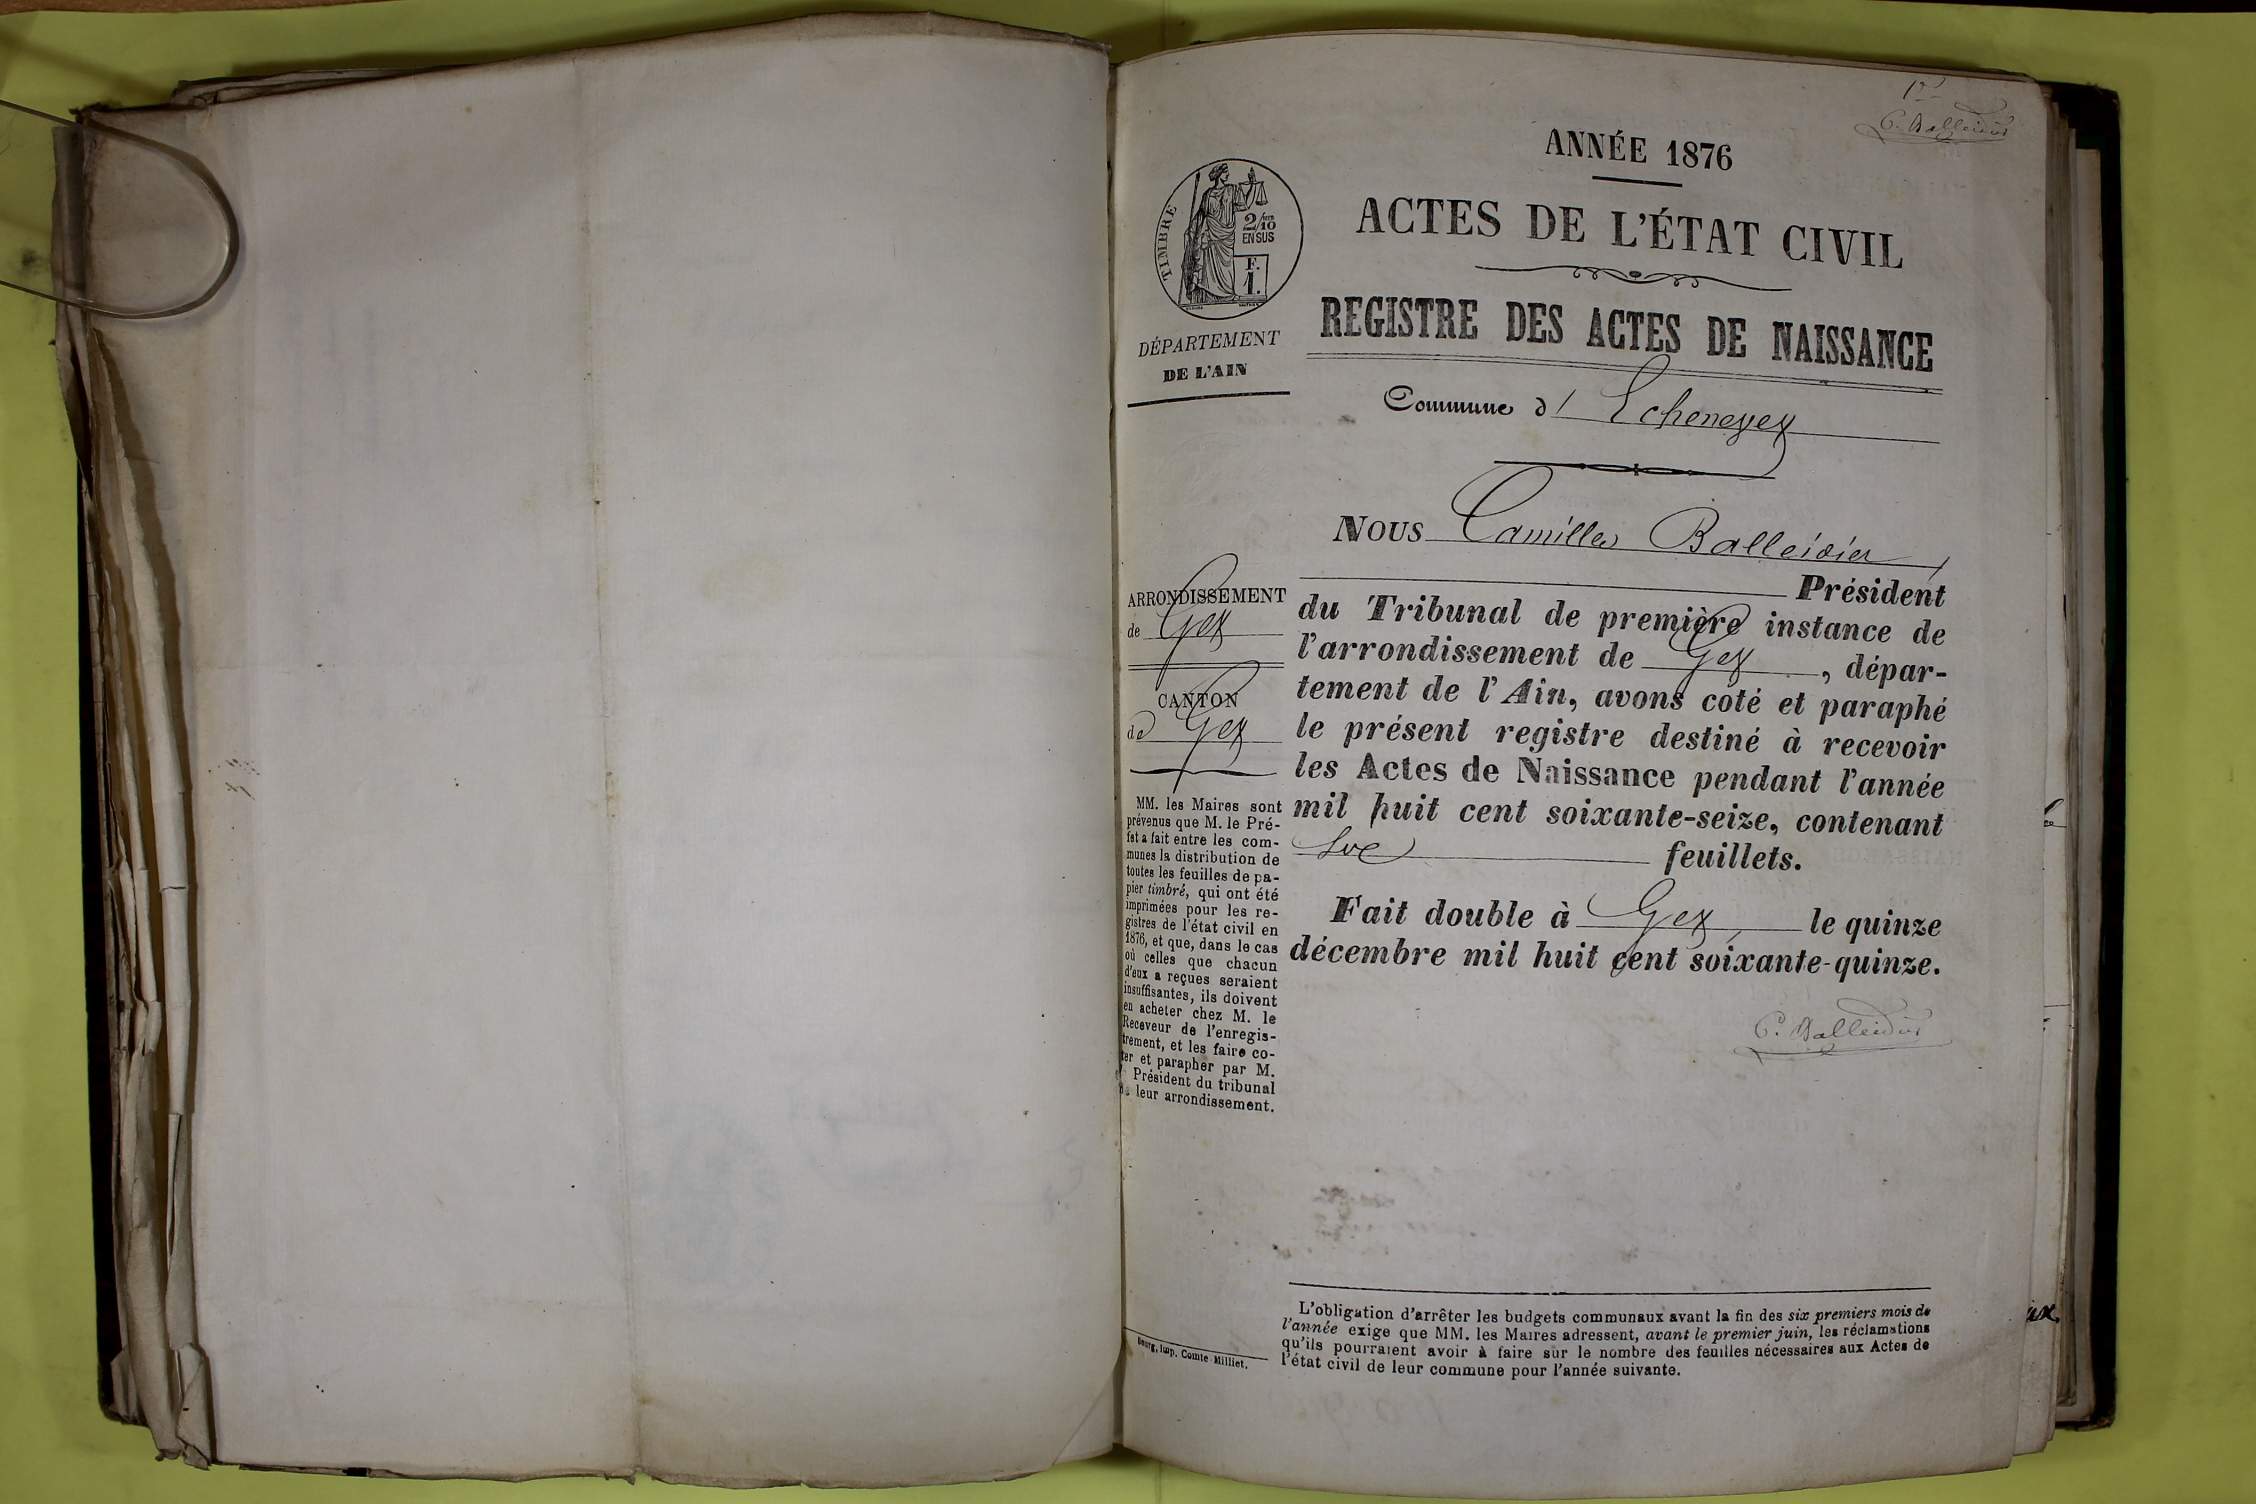 1er
C. Balleidier
ANNÉE 1876
ACTES DE L'ÉTAT CIVIL
REGISTRE DES ACTES DE NAISSANCE
Commune d' Echenevex
TIMBRE
2/10
EN SUS
F.
1.
DÉPARTEMENT
DE L'AIN
ARRONDISSEMENT
de Gex
CANTON
de Gex
MM. les Maires sont
prévenus que M. le Pré-
fet a fait entre les com-
munes la distribution de
toutes les feuilles de pa-
pier timbré, qui ont été
imprimées pour les re-
gistres de l'état civil en
1876, et que, dans le cas
où celles que chacun
d'eux a reçues seraient
insuffisantes, ils doivent
en acheter chez M. le
Receveur de l'enregis-
trement, et les faire co-
ter et parapher par M.
Président du tribunal
leur arrondissement.
Bourg, Imp. Comte-Milliet.
NOUS Camille Balleidier,
Président
du Tribunal de première instance de
l'arrondissement de Gex, dépar-
tement de l'Ain, avons coté et paraphé
le présent registre destiné à recevoir
les Actes de Naissance pendant l'année
mil huit cent soixante-seize, contenant
feuillets.
Fait double à Gex, le quinze
décembre mil huit cent soixante-quinze.
C. Balleidier
L'obligation d'arrêter les budgets communaux avant la fin des six premiers mois de
l'année exige que MM. les Maires adressent, avant le premier juin, les réclamations
qu'ils pourraient avoir à faire sur le nombre des feuilles nécessaires aux Actes de
l'état civil de leur commune pour l'année suivante.